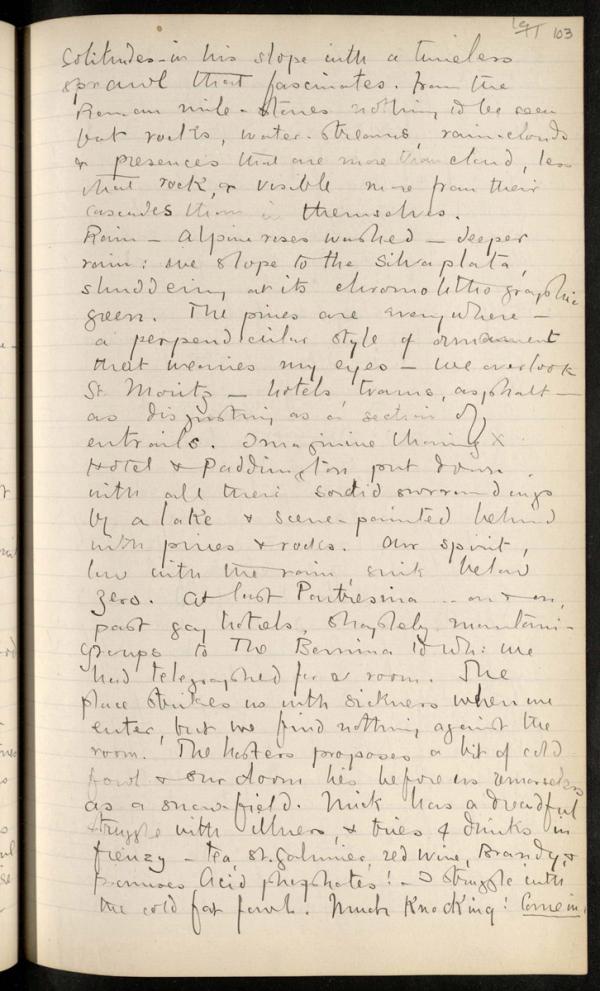 103
Solitudes - in his slope with a timeless
sprawl that fascinates. From the
Roman mile-stones nothing to be seen
but rocks, water-streams, rain-clouds
& presences that are more than cloud, less
that rock, & visible more from their
cascades than in themselves.
Rain - Alpine roses washed - deeper
rain: we slope to the Silvaplata,
shuddering at its chromolithographic
green. The pines are everywhere -
a perpendicular style of ornament
that wearies my eyes - We overlook
St. Moritz - hotels, trams, asphalt -
as disgusting as a section of
entrails. Imagine Charing X
Hotel & Paddington put down
with all their sordid surroundings
by a lake & scene-painted behind
with pines & rocks. Our spirits,
low with the rain, sink below
zero. At last Pontresina - on & on,
past gay hotels, shapely mountain-
groups to The Bernina to wh: we
had telegraphed for a room. The
place strikes us with sickness when we
enter, but we find nothing against the
room. The hostess proposes a bit of cold
fowl & our doom lies before us remorseless
as a snow-field. Mick has a dreadful
struggle with illness, & tries 4 drinks in
frenzy - tea, St. Galmier, red wine, Brandy &
Acid phosphates! - I struggle with
the cold fat fowl. Much Knocking! Come in!